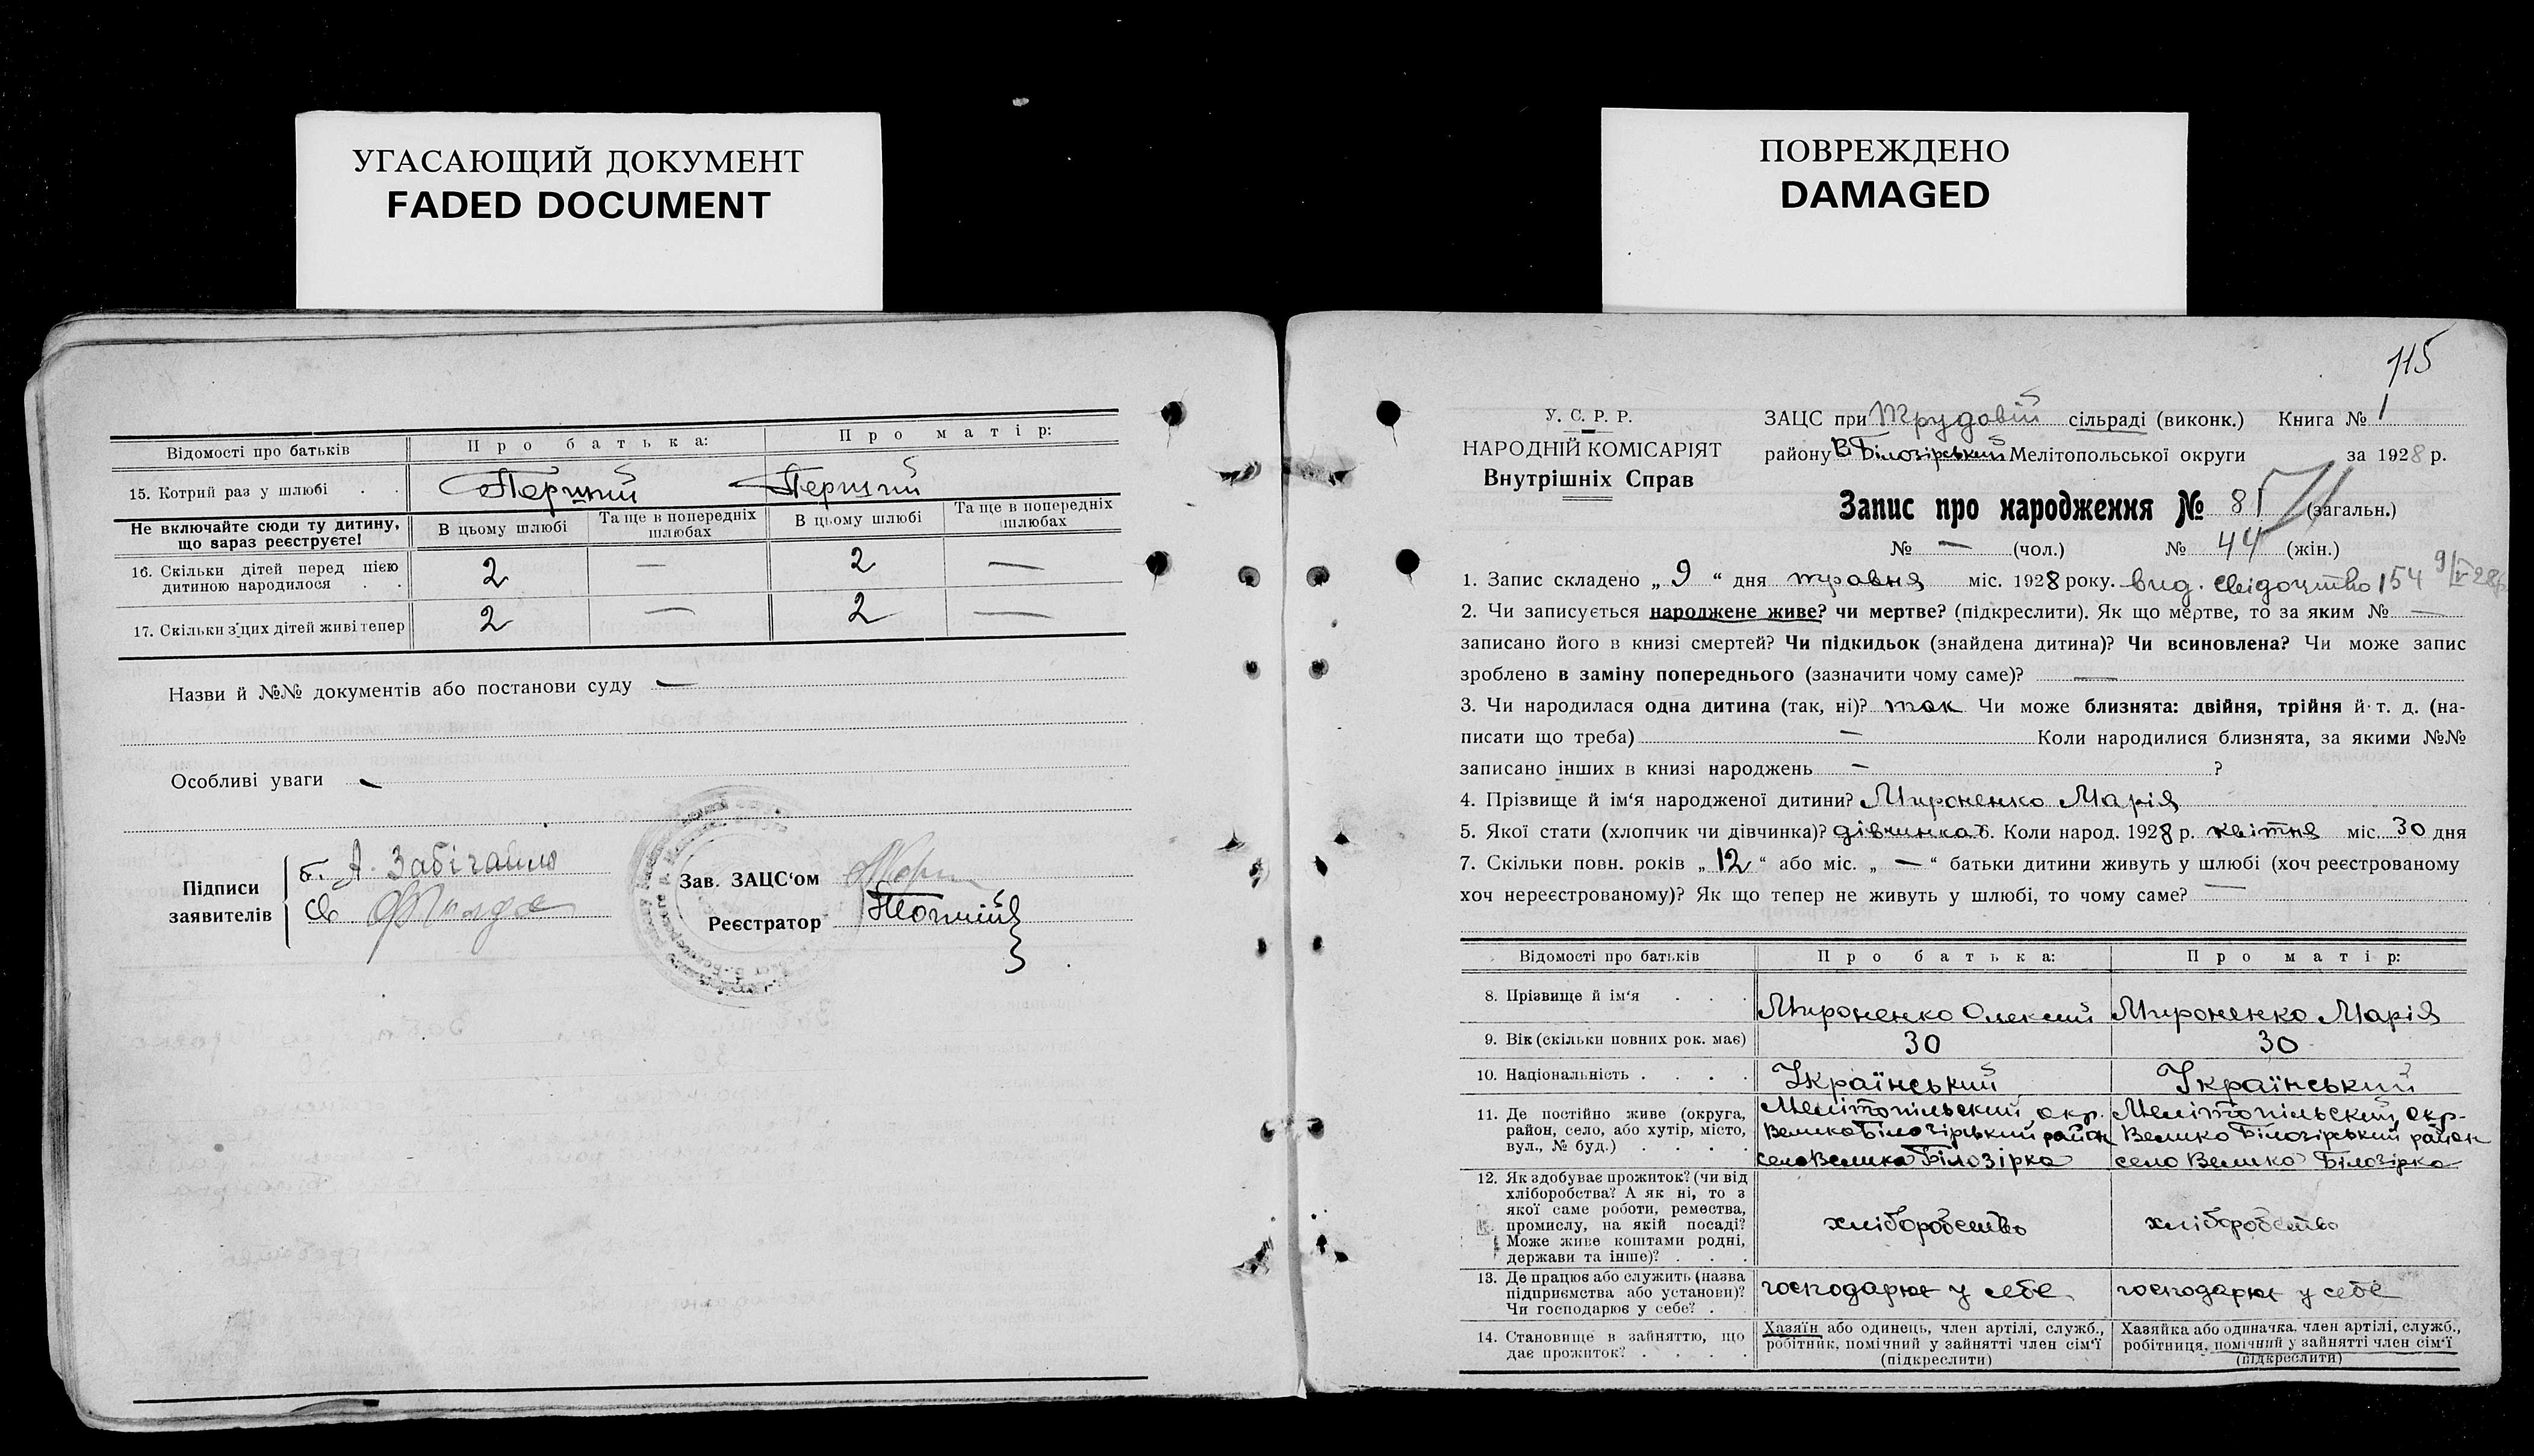 УГАСАЮЩИЙ ДОКУМЕНТ
FADED DOCUMENT
Відомості про батьків Про батька: Про матір:
15. Котрий раз у шлюбі . . Перший Перший
Не включайте сюди ту дитину, що вараз реєструєте! В цьому шлюбі Та ще в попередніх шлюбах В цьому шлюбі Та ще в попередніх шлюбах
16. Скільки дітей перед цією дитиною народилося . . 2 — 2 —
17. Скільки з'цих дітей живі тепер 2 — 2 —
Назви й №№ документів або постанови суду —
Особливі уваги —
Підписи заявителів
б. А. Забігайло
Св
Зав. ЗАЦС'ом
Реєстратор
ПОВРЕЖДЕНО
DAMAGED
115
У. С. Р. Р.
НАРОДНІЙ КОМІСАРІЯТ
Внутрішніх Справ
ЗАЦС при Трудовій сільраді (виконк.) Книга № 1
району В Білозірський Мелітопольської округи за 1928 р.
Запис про народження № (загальн.)
№ — (чол.) № 44 (жін.)
1. Запис складено „ 9 “ дня травня міс. 1928 року. вид. свідоцтво 154 9/V 28р
2. Чи записується народжене живе? чи мертве? (підкреслити). Як що мертве, то за яким № —
записано його в книзі смертей? Чи підкидьок (знайдена дитина)? Чи всиновлена? Чи може запис
зроблено в заміну попереднього (зазначити чому саме)? —
3. Чи народилася одна дитина (так, ні)? так Чи може близнята: двійня, трійня й т. д. (на-
писати що треба) — Коли народилися близнята, за якими №№
записано інших в книзі народжень — ?
4. Прізвище й ім'я народженої дитини? Мироненко Марія
5. Якої стати (хлопчик чи дівчинка)? дівчинка 6. Коли народ. 1928 р. квітня міс. 30 дня
7. Скільки повн. років „ 12 “ або міс. „ — “ батьки дитини живуть у шлюбі (хоч реєстрованому
хоч нереєстрованому)? Як що тепер не живуть у шлюбі, то чому саме? —
Відомості про батьків Про батька: Про матір:
8. Прізвище й ім'я . . . Мироненко Олексий Мироненко Марія
9. Вік (скільки повних рок. має) 30 30
10. Національність . . . . Український Український
11. Де постійно живе (округа, район, село, або хутір, місто, вул., № буд.) . . . .
Мелітопільский окр. Велико Білозірький район село Велика Білозірка
Мелітопільский окр- Велико Білозірький район село Велико Білозірка
12. Як здобуває прожиток? (чи від хліборобства? А як ні, то з якої саме роботи, ремества, промислу, на якій посаді? Може живе коштами родні, держави та інше)? . . .
хліборобство хліборобство
13. Де працює або служить (назва підприємства або установи)? Чи господарює у себе? .
господарює у себе господарює у себе
14. Становище в зайняттю, що дає прожиток? . . . .
Хазяїн або одинець, член артілі, служб., робітник, помічний у зайнятті член сім'ї (підкреслити)
Хазяйка або одиначка, член артілі, служб., робітниця, помічний у зайнятті член сім'ї (підкреслити)